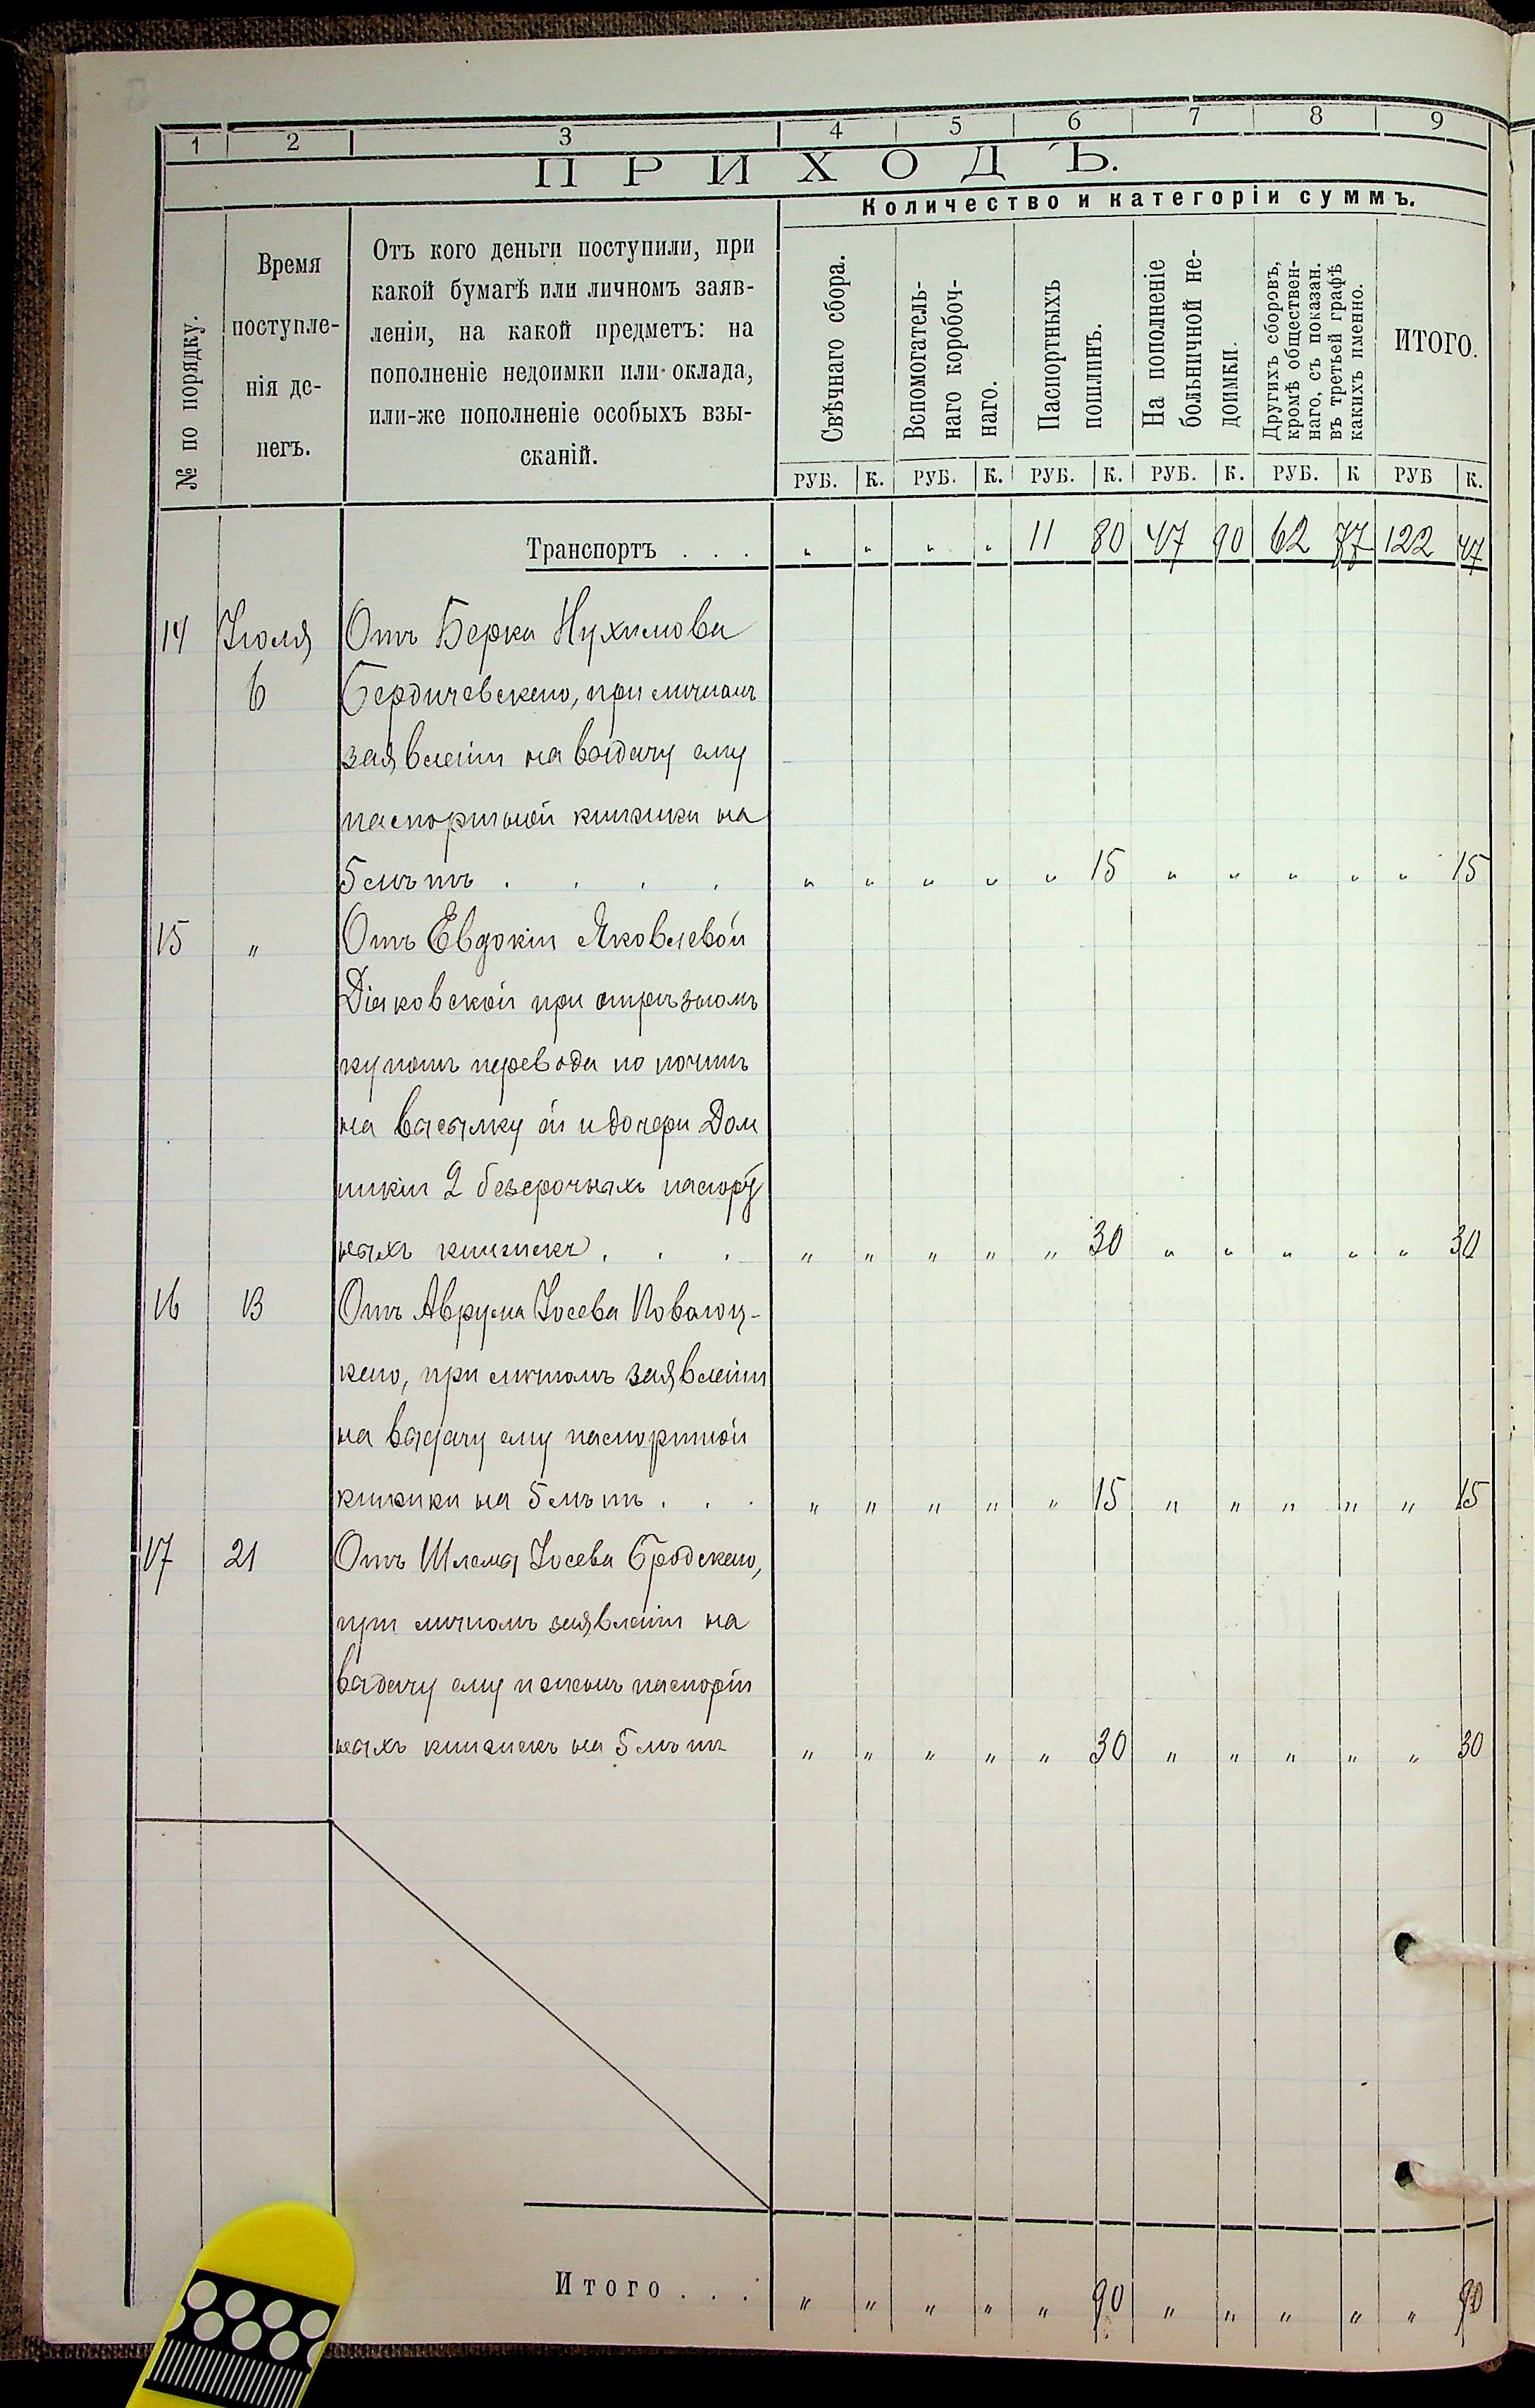 1 2 3 4 5 6 7 8 9
ПРИХОДЪ.
Количество и категоріи суммъ.
№ по порядку.
Время
поступле-
нія де-
негъ.
Отъ кого деньги поступили, при
какой бумагѣ или личномъ заяв-
леніи, на какой предметъ: на
пополненіе недоимки или оклада,
или-же пополненіе особыхъ взы-
сканій.
Свѣчнаго сбора.
Вспомогатель-
наго коробоч-
наго.
Паспортныхъ
пошлинъ.
На пополненіе
больничной не-
доимки.
Другихъ сборовъ,
кромѣ обществен-
наго, съ показан.
въ третьей графѣ
какихъ именно.
ИТОГО.
РУБ. К. РУБ. К. РУБ. К. РУБ. К. РУБ. К РУБ К.
Транспортъ . . . „ „ „ „ 11 80 47 90 62 77 122 47
14 Іюля Отъ Берка Нухимова
6 Бердичевскаго, при личномъ
заявленіи на выдачу ему
паспортной книжки на
5 лѣтъ . . . . „ „ „ „ „ 15 „ „ „ „ „ 15
15 „ Отъ Евдокіи Яковлевой
Діаковской при отрѣзномъ
купонѣ перевода по почтѣ
на высылку ей и дочери Дом
никіи 2 безсрочныхъ паспорт
ныхъ книжекъ . . . „ „ „ „ „ 30 „ „ „ „ „ 30
16 13 Отъ Аврума Іосева Поволоц-
каго, при личномъ заявленіи
на выдачу ему паспортной
книжки на 5 лѣтъ . . . „ „ „ „ „ 15 „ „ „ „ „ 15
17 21 Отъ Шлемы Іосева Бродскаго,
при личномъ заявленіи на
выдачу ему и женѣ паспорт
ныхъ книжекъ на 5 лѣтъ „ „ „ „ „ 30 „ „ „ „ „ 30
Итого . . . „ „ „ „ „ 90 „ „ „ „ „ 90